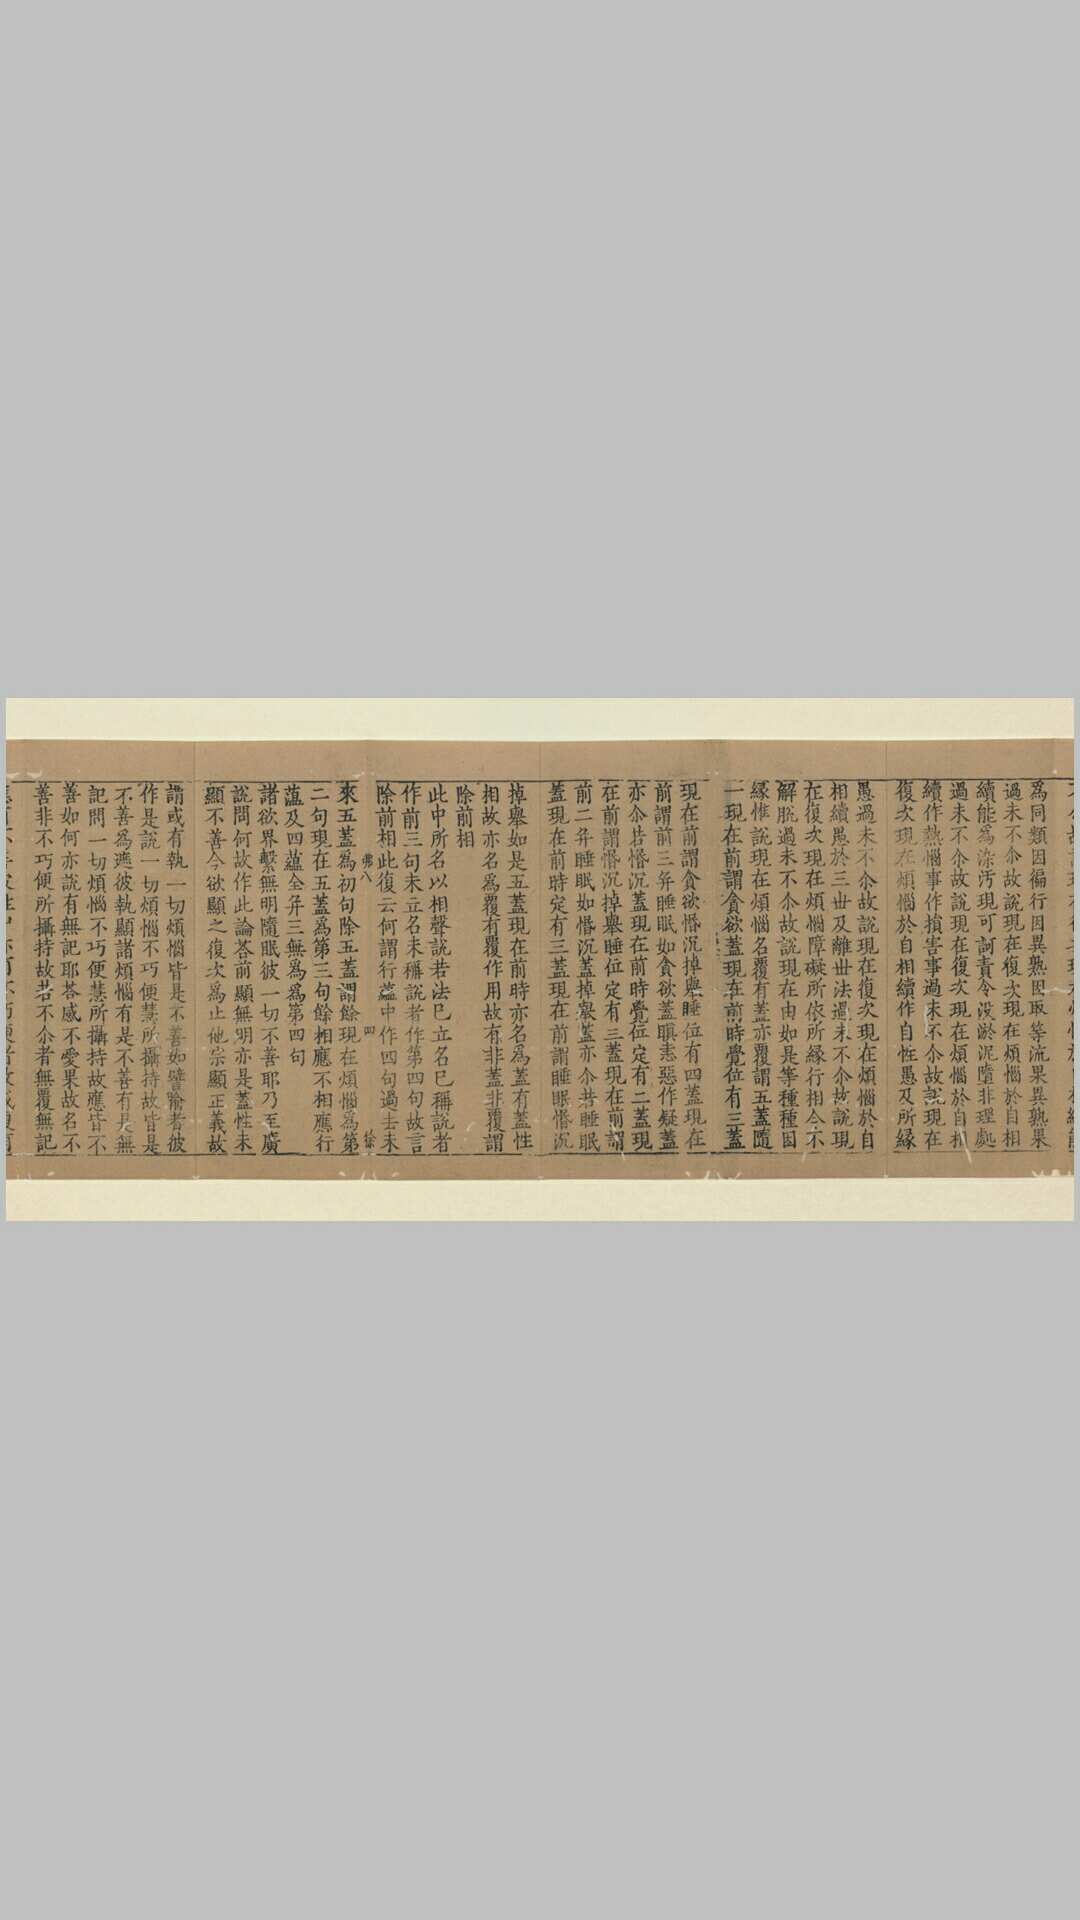 為同類因徧行因異熟因取等流果異熟果
過未不尒故說現在復次現在煩惱於自相
續能為染汚現可訶責令没淤泥墮非理處
過未不尒故說現在復次現在煩惱於自相
續作熱惱事作損害事過未不尒故說現在
復次現在煩惱於自相續作自性愚及所緣
愚過未不尒故說現在復次現在煩惱於自
相續愚於三世及離世法過未不尒故說現
在復次現在煩惱障礙所依所緣行相令不
解脫過未不尒故說現在由如是等種種因
緣惟說現在煩惱名覆有蓋亦覆謂五蓋隨
一現在前謂貪欲蓋現在前時覺位有三蓋
現在前謂貪欲惛沉掉舉睡位有四蓋現在
前謂前三并睡眠如貪欲蓋瞋恚惡作疑蓋
亦尒若惛沉蓋現在前時覺位定有二蓋現
在前謂惛沉掉舉睡位定有三蓋現在前謂
前二并睡眠如惛沉蓋掉舉蓋亦尒若睡眠
蓋現在前時定有三蓋現在前謂睡眠惛沉
掉舉如是五蓋現在前時亦名為蓋有蓋性
相故亦名為覆有覆作用故有非蓋非覆謂
除前相
此中所名以相聲說若法已立名已稱說者
作前三句未立名未稱說者作第四句故言
除前相此復云何謂行蘊中作四句過去未
弗八 四
來五蓋為初句除五蓋謂餘現在煩惱為第
二句現在五蓋為第三句餘相應不相應行
蘊及四蘊全并三無為為第四句
諸欲界繫無明隨眠彼一切不善耶乃至廣
說問何故作此論答前顯無明亦是蓋性未
顯不善今欲顯之復次為止他宗顯正義故
謂或有執一切煩惱皆是不善如譬喻者彼
作是說一切煩惱不巧便慧所攝持故皆是
不善為遮彼執顯諸煩惱有是不善有是無
記問一切煩惱不巧便慧所攝持故應皆不
善如何亦說有無記耶答感不愛果故名不
善非不巧便所攝持故若不尒者無覆無記